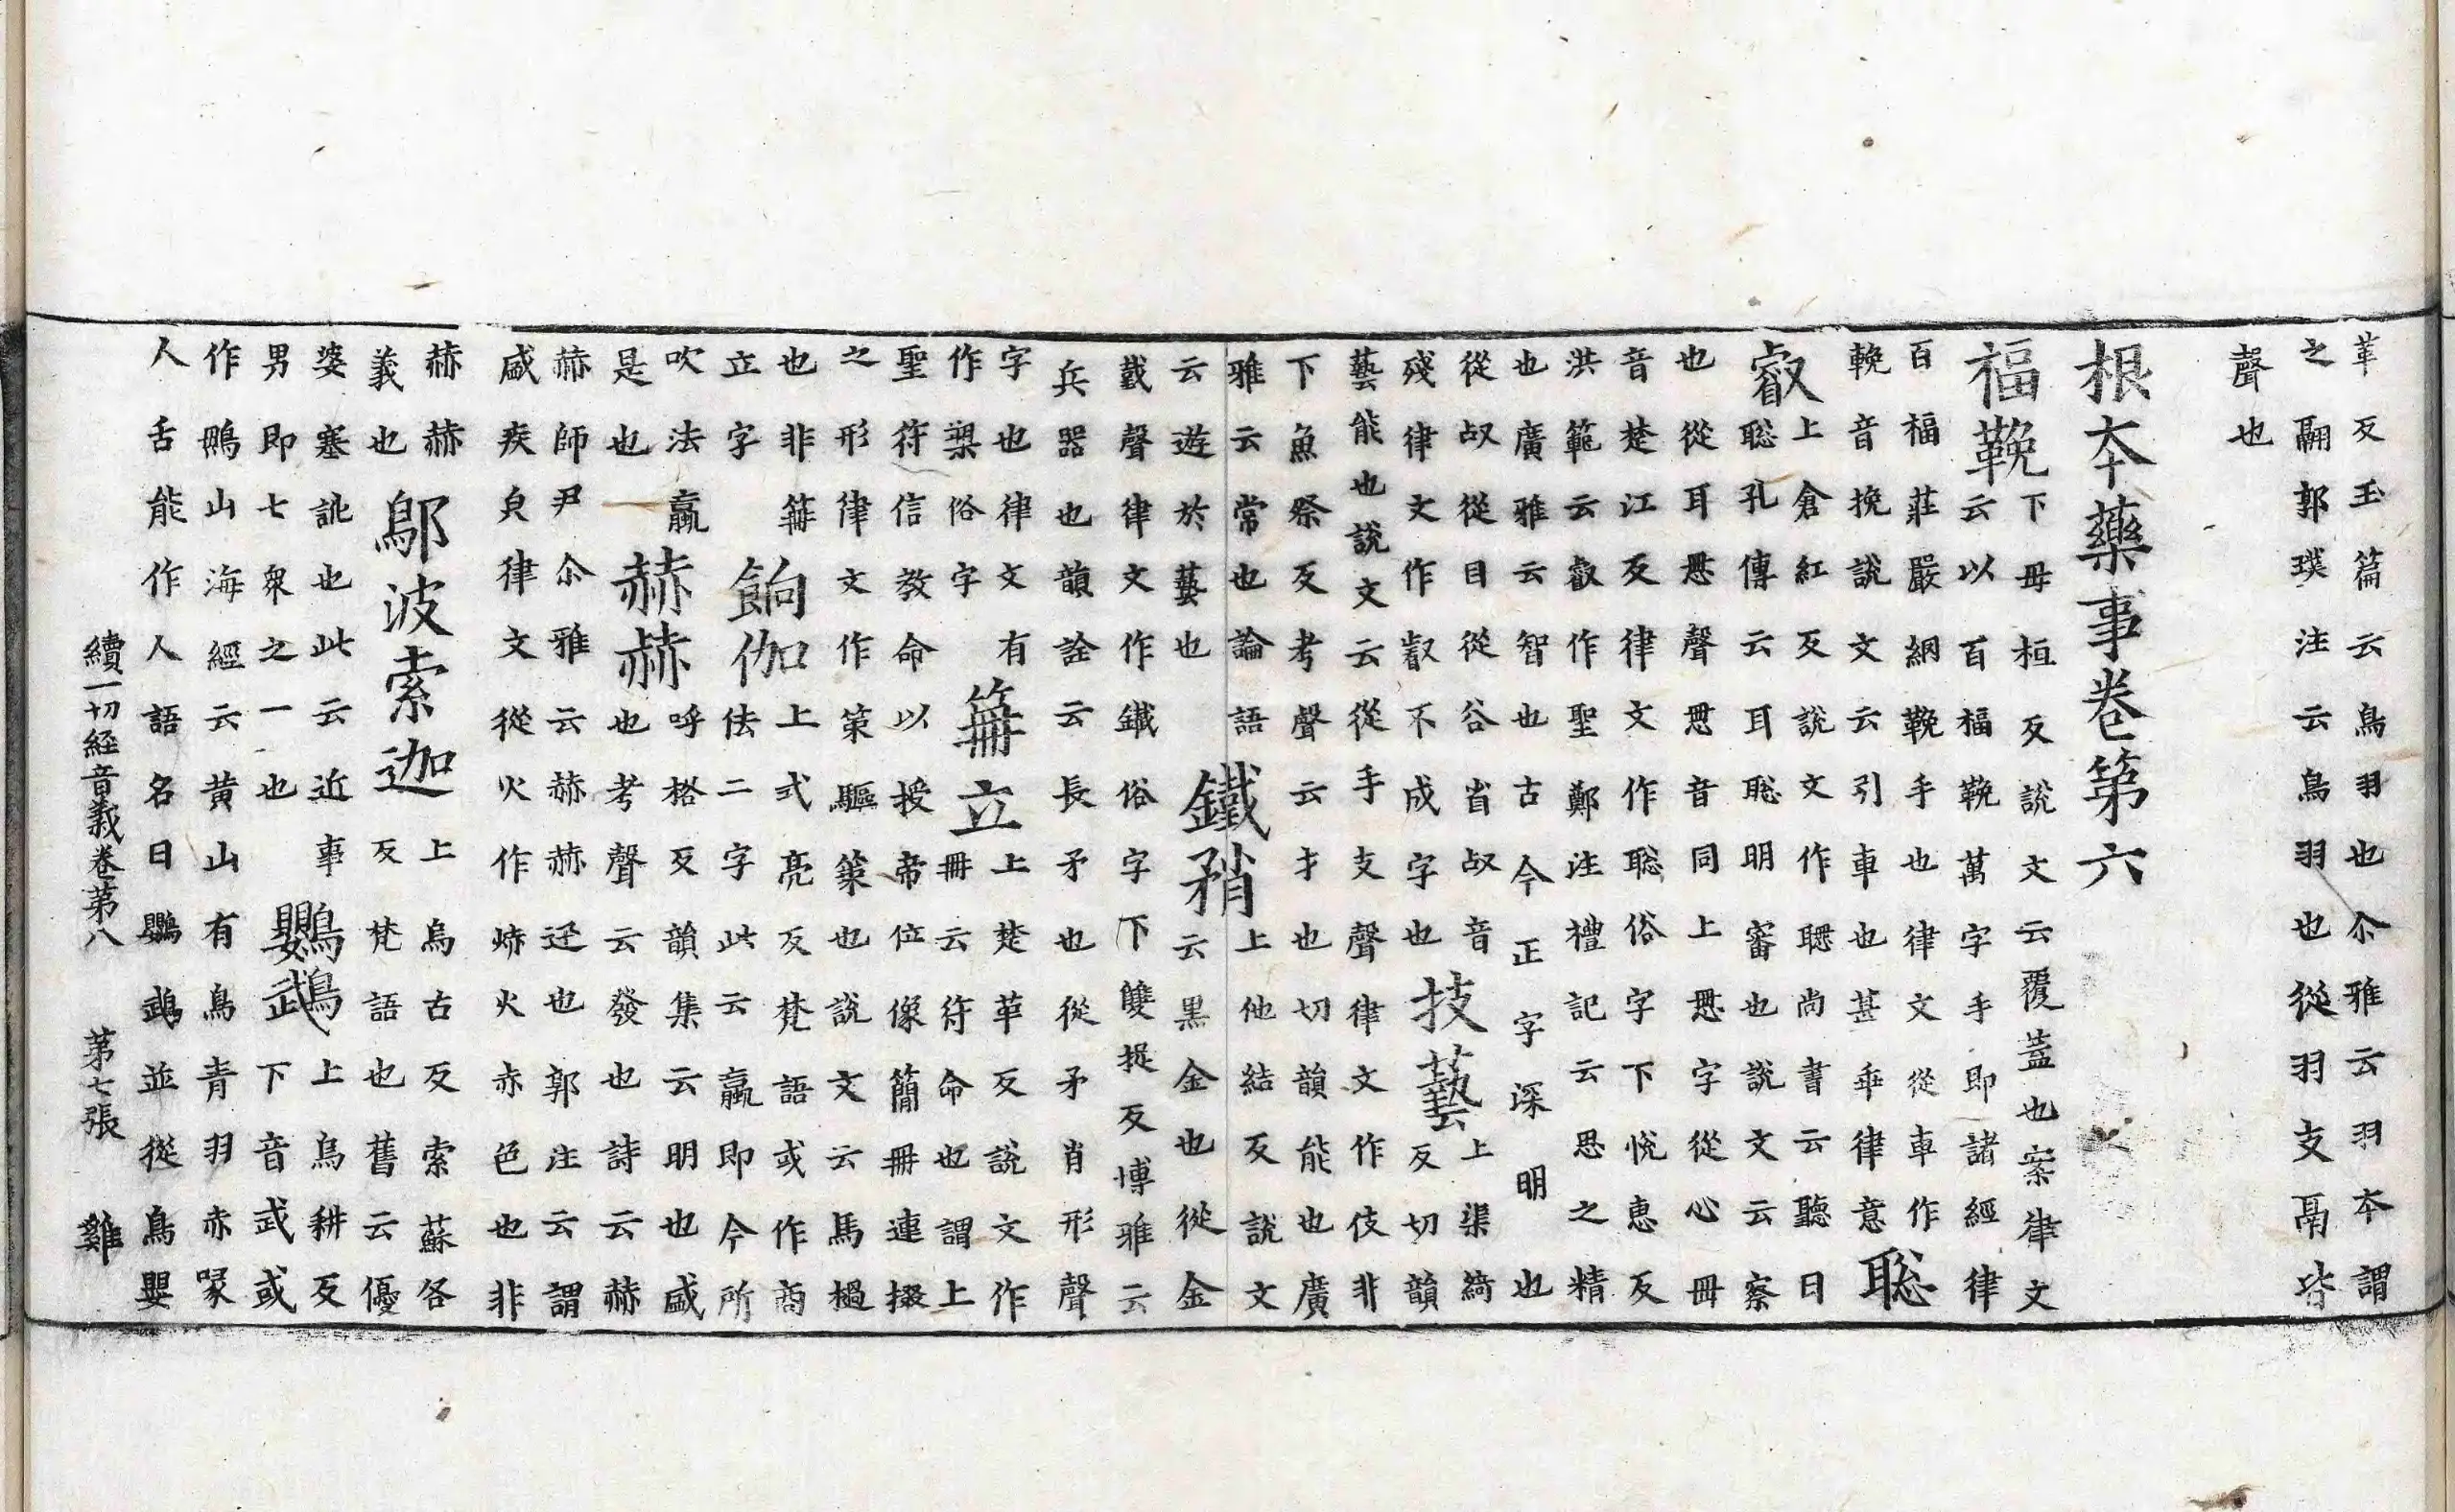 革反玉篇云鳥羽也尒雅云羽本謂
之翮郭璞注云鳥羽也從羽支鬲皆
聲也
根本藥事卷第六
福鞔下毋桓反說文云覆蓋也案律文
云以百福鞔萬字手即諸經律
百福莊嚴網鞔手也律文從車作
輓音挽說文云引車也甚乖律意 聡
叡上倉紅反說文作聰尚書云聽曰
聡孔傳云耳聡明審也說文云察
也從耳悤聲悤音同上悤字從心冊
音楚江反律文作聡俗字下悅恵反
洪範云叡作聖鄭注禮記云思之精
也廣雅云智也古今正字深明也
從㕡從目從谷省㕡音
殘律文作叡不成字也 技藝上渠綺反切韻
藝能也說文云從手支聲律文作伎非
下魚祭反考聲云才也切韻能也廣
雅云常也論語
云遊於藝也 鐵矟上他結反說文云黑金也從金
𢧜聲律文作鐵俗字下雙捉反博雅云
兵器也韻詮云長矛也從矛肖形聲
字也律文有
作槊俗字 箳立上楚革反說文作冊云符命也謂上
聖符信教命以授帝位像簡冊連掇
之形律文作策驅䇿也說文云馬檛
也非箳
立字 餉伽上式亮反梵語或作商佉二字此云蠃即今所
吹法蠃
是也 赫赫呼格反韻集云明也盛也考聲云發也詩云赫
赫師尹尒雅云赫赫迅也郭注云謂
盛疾皃律文從火作焃火赤色也非
赫赫
義也 鄔波索迦上烏古反索蘇各反梵語也舊云優
婆塞訛也此云近事
男即七衆之一也 鸚䳇上烏耕反下音武或
作鵡山海經云黃山有鳥青羽赤喙
人舌能作人語名曰鸚䳇並從鳥嬰
續一切経音義卷第八 苐七張 雞